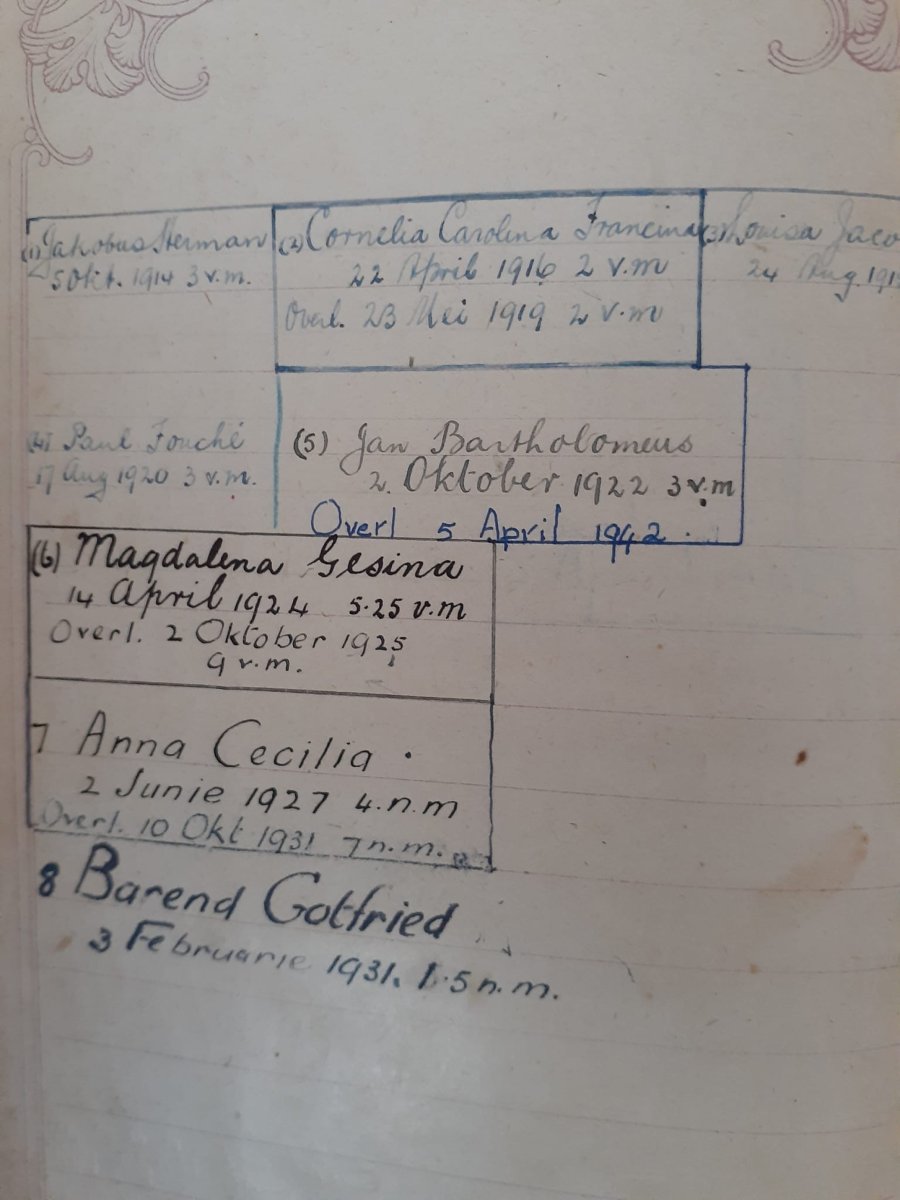 (1) Jakobus Herman
5 Okt. 1914 3 v.m.
(2) Cornelia Carolina Francina
22 April 1916 2 v.m
Overl. 23 Mei 1919 2 v.m
(3) Louisa Jaco
24 Aug. 191
(4) Paul Fouché
17 Aug 1920 3 v.m.
(5) Jan Bartholomeus
2. Oktober 1922 3 v.m
Overl 5 April 1942.
(6) Magdalena Gesina
14 April 1924 5.25 v.m
Overl. 2 Oktober 1925
9 v.m.
7 Anna Cecilia .
2 Junie 1927 4.n.m
Overl. 10 Okt 1931 7 n.m.
8 Barend Gotfried
3 Februarie 1931. 1.5 n.m.